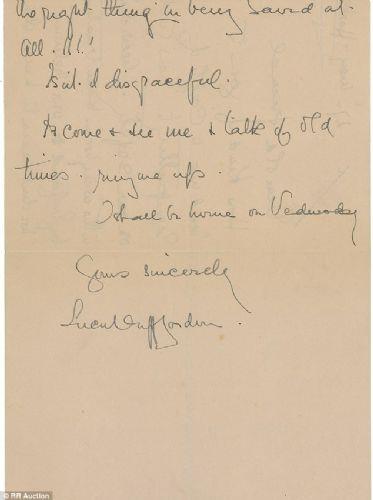 the right thing in being saved at
all. !!!
Isn't it disgraceful.
Do come & see me & talk of old
times. ring me up.
I shall be home on Wednesday
Yours sincerely
Lucile Duff Gordon.
© RR Auction